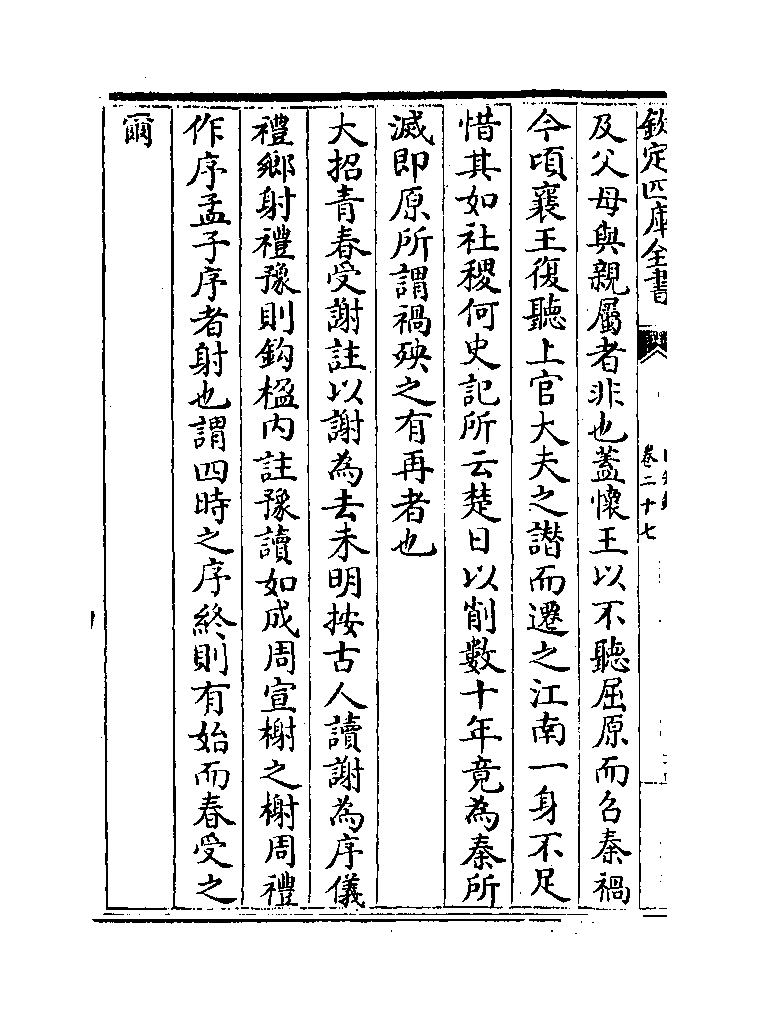 欽定四庫全書
卷二十七
及父母與親屬者非也蓋懷王以不聽屈原而召秦禍
今頃襄王復聽上官大夫之譖而遷之江南一身不足
惜其如社稷何史記所云楚日以削數十年竟為秦所
滅即原所謂禍殃之有再者也
大招青春受謝註以謝為去未明按古人讀謝為序儀
禮鄉射禮豫則鈎楹内註豫讀如成周宣榭之榭周禮
作序孟子序者射也謂四時之序終則有始而春受之
爾